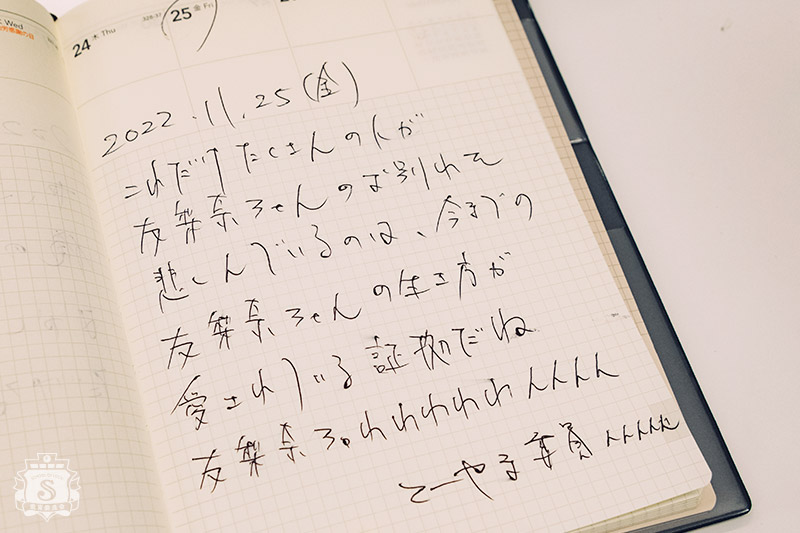 Wed
24 木 Thu
25 金 Fri
2022.11.25(金)
これだけたくさんの人が
友梨奈ちゃんのお別れを
悲しんでいるのは、今までの
友梨奈ちゃんの生き方が
愛されている証拠だね
友梨奈ちゃわわわわわんんんん
とーやま委員んんんん
S